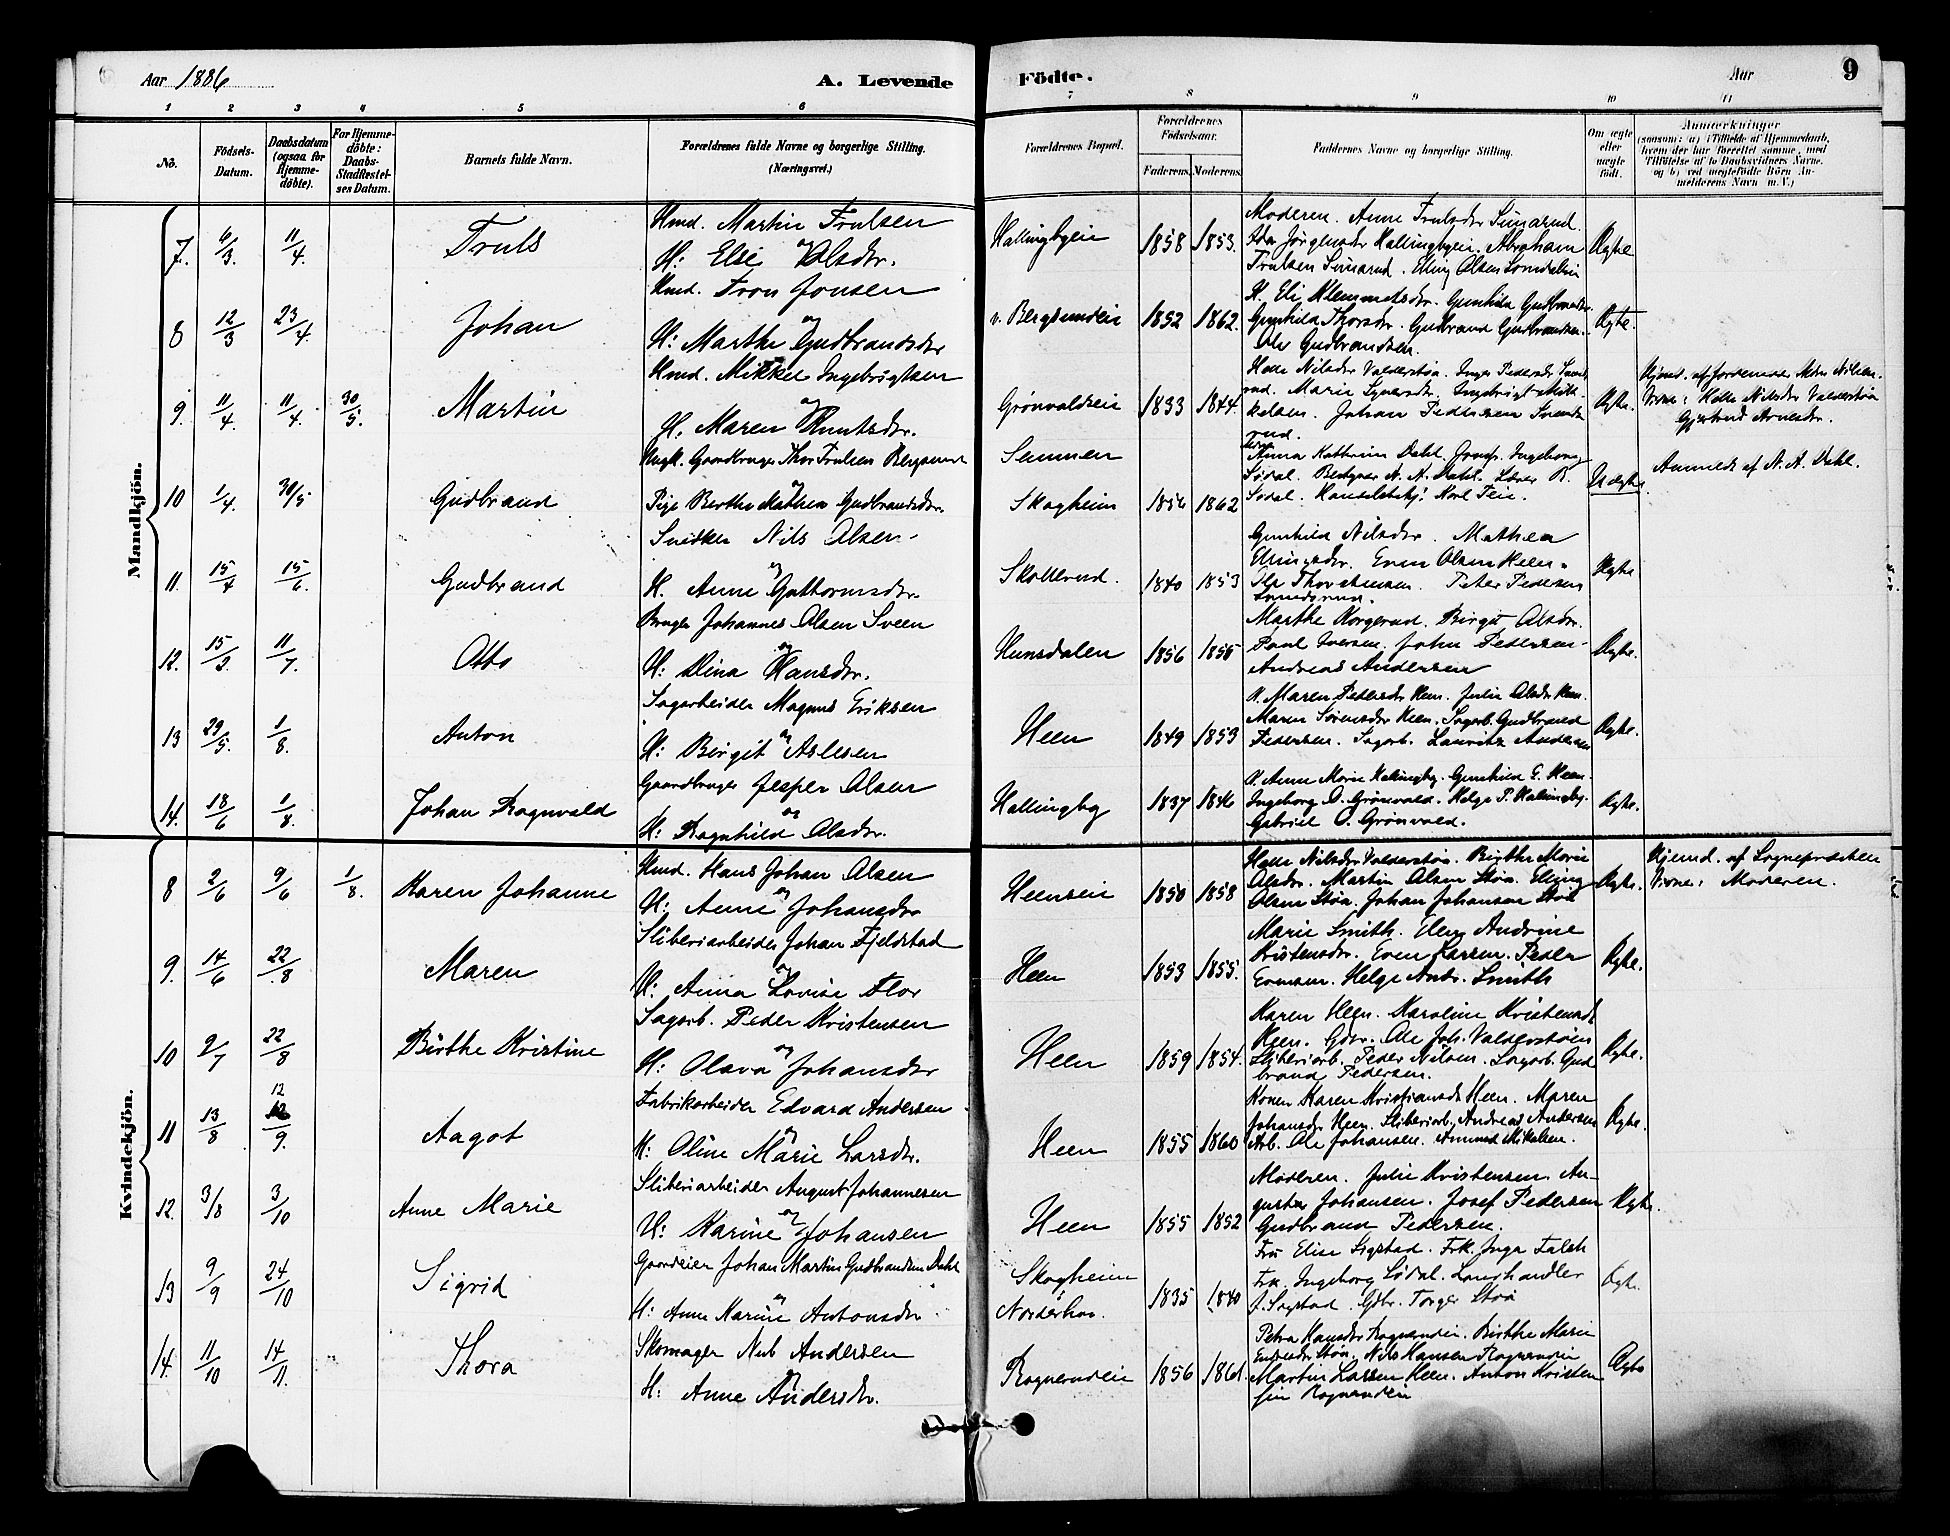 Aar 1886
A. Levende Födte.
Aar
9
1 2 3 4 5 6 7 8 9 10 11
No.
Födsels-Datum.
Daabsdatum (ogsaa for Hjemmedöbte).
For Hjemmedöbte: Daabs-Stadfæstelses Datum.
Barnets fulde Navn.
Forældrenes fulde Navne og borgerlige Stilling. (Næringsvei.)
Forældrenes Bopæl.
Forældrenes Födselsaar.
Faderens. Moderens.
Faddernes Navne og borgerlige Stilling.
Om ægte eller uægte födt.
Anmærkninger (saasom: a) i Tilfælde af Hjemmedaab, hvem der har forrettet samme, med Tilföielse af to Daabsvidners Navne, og b) ved uægtefödte Börn Anmelderens Navn m. V.)
Mandkjön.
7. 6/3. 11/4. Truls
Hmd. Martin Trulsen
og
H: Elie Olsdr.
Hallingbyeie 1858 1853.
Moderen. Anne Trulsdr Simarud.
Ida Jörgensdr Hallingbyeie. Abraham
Trulsen Simarud. Elling Olsen
Ægte
8 12/3 23/4. Johan
Hmd. Tron Jonsen
og
H: Marthe Gudbrandsdr
v. Bergsundeie 1852 1862.
H. Eli Klemmetsdr. Gunhild Gudbrandsdr.
Gunhild Thorsdr. Gudbrand Gudbrandsen.
Ole Gudbrandsen.
Ægte.
9. 11/4. 11/4. 30/5. Martin
Hmd. Mikkel Ingebrigtsen
og
H. Maren Knutsdr.
Grönvoldseie 1833 1844.
Helle Nilsdr Valderstöa. Inger Pedersdr
Marie Ingebrigt Mik-
kelsen. Johan Pedersen
rud.
Ægte.
Hjemd. af Jordemoder Nilsen.
Vidne: Helle Nilsdr Valderstöa
Gjertrud Arnesdr.
10 1/4. 30/5 Gudbrand
Ungk. Gaardbruger Thor Trulsen Bergsund
og
Pige Berthe Mathea Gudbrandsdr.
Semmen
Skagheim 1856 1862
Anna Kathrine Dahl. Ingeborg
Södal. N. A. Dahl. Lærer B.
Södal. Karl Teie.
Uægte.
Anmeldt af N. A. Dahl.
11. 15/4 15/6. Gudbrand
Snedker Nils Olsen
og
H. Anne Guthormsdr.
Skollerud. 1840 1853
Gunhild Nilsdr. Mathea
Ellingsdr. Even Olsen Heen.
Ole Thorstensen. Peter Pedersen
Ægte
12. 15/2. 11/7. Otto
Bruger Johannes Olsen Sveen
og
H: Dina Hansdr.
Hunsdalen 1856 1855
Marthe Korgerud. Birgit Olsdr.
Paul Iversen. John Pedersen.
Andreas Andersen
Ægte.
13 29/5. 1/8. Anton
Sagarbeider Magnus Eriksen
og
H: Birgit Aslesen
Heen 1849 1853
H. Maren Pedersdr Heen. Julie Olsdr Heen.
Maren Sörensdr Heen. Sagarb. Gudbrand
Pedersen. Sagarb. Lauritz Andersen
Ægte.
14. 18/6 1/8. Johan Ragnvald
Gaardbruger Jesper Olsen
og
H: Ragnhild Olsdr.
Hallingby 1837 1846
H. Anne Marie Hallingby. Gunhild G. Heen.
Ingeborg O. Grönvold. Helge P. Hallingby.
Gabriel O. Grönvold.
Ægte.
Kvindekjön.
8 2/6 9/6 1/8. Karen Johanne
Hmd. Hans Johan Olsen
og
H: Anne Johansdr
Heenseie 1850 1858
Helle Nilsdr Valderstöa. Birthe Marie
Olsdr. Martin Olsen Stöa. Elling
Olsen Stöa. Johan Johansen Stöa
Ægte.
Hjemd. af Sognepræsten
Vidne: Moderen.
9. 14/6 22/8 Maren
Sliberiarbeider Johan Fjeldstad
og
H: Anna Lovise Flor
Heen 1853 1855.
Marie Smith. Elen Andrine
Kristensdr. Even Larsen. Peder
Evensen. Helge Andr. Smith
Ægte.
10 2/7 22/8 Birthe Kristine
Sagarb. Peder Kristensen
og
H: Olava Johansdr
Heen 1859 1854.
Karen Heen. Karoline Kristensdr
Heen. Gdbr. Ole Joh. Valderstöen
Sliberiarb. Peder Nilsen. Sagarb. Gud
brand Pedersen.
Ægte.
11 13/8 12 12/9. Aagot
Fabrikarbeider Edvard Andersen
og
H. Oline Marie Larsdr.
Heen 1855 1860
Konen Karen Kristiansdr Heen. Maren
Johansdr Heen. Sliberiarb. Andreas Andersen
Arb. Ole Johansen. Amund Mikelsen.
Ægte.
12. 3/8 3/10 Anne Marie
Sliberiarbeider August Johannesen
og
H: Karine Johansen
Heen 1855 1852
Moderen. Julie Kristensen. Au-
gusta Johansen. Josef Pedersen
Gudbrand Pedersen.
Ægte.
13 9/9 24/10 Sigrid
Gaardeier Johan Martin Gudbrandsen Dahl
og
H: Anne Marine Antonsdr
Skagheim
Norderhov. 1835 1840
Fru Elise Sigstad. Frk. Inga Falch
Frk. Ingeborg Södal. Landhandler
J. Sagstad. Gdbr. Torger Stöa
Ægte.
14. 11/10 14/11. Thora
Skomager Nub Andersen
og
H: Anne Andersdr.
Ragnerudeie 1856 1861.
Petra Hansdr Ragnerudeie. Birthe Marie
Stöa. Nils Hansen Ragnerudeie
Martin Larsen Heen. Anton Kristen
sen Ragnerudeie
Ægte